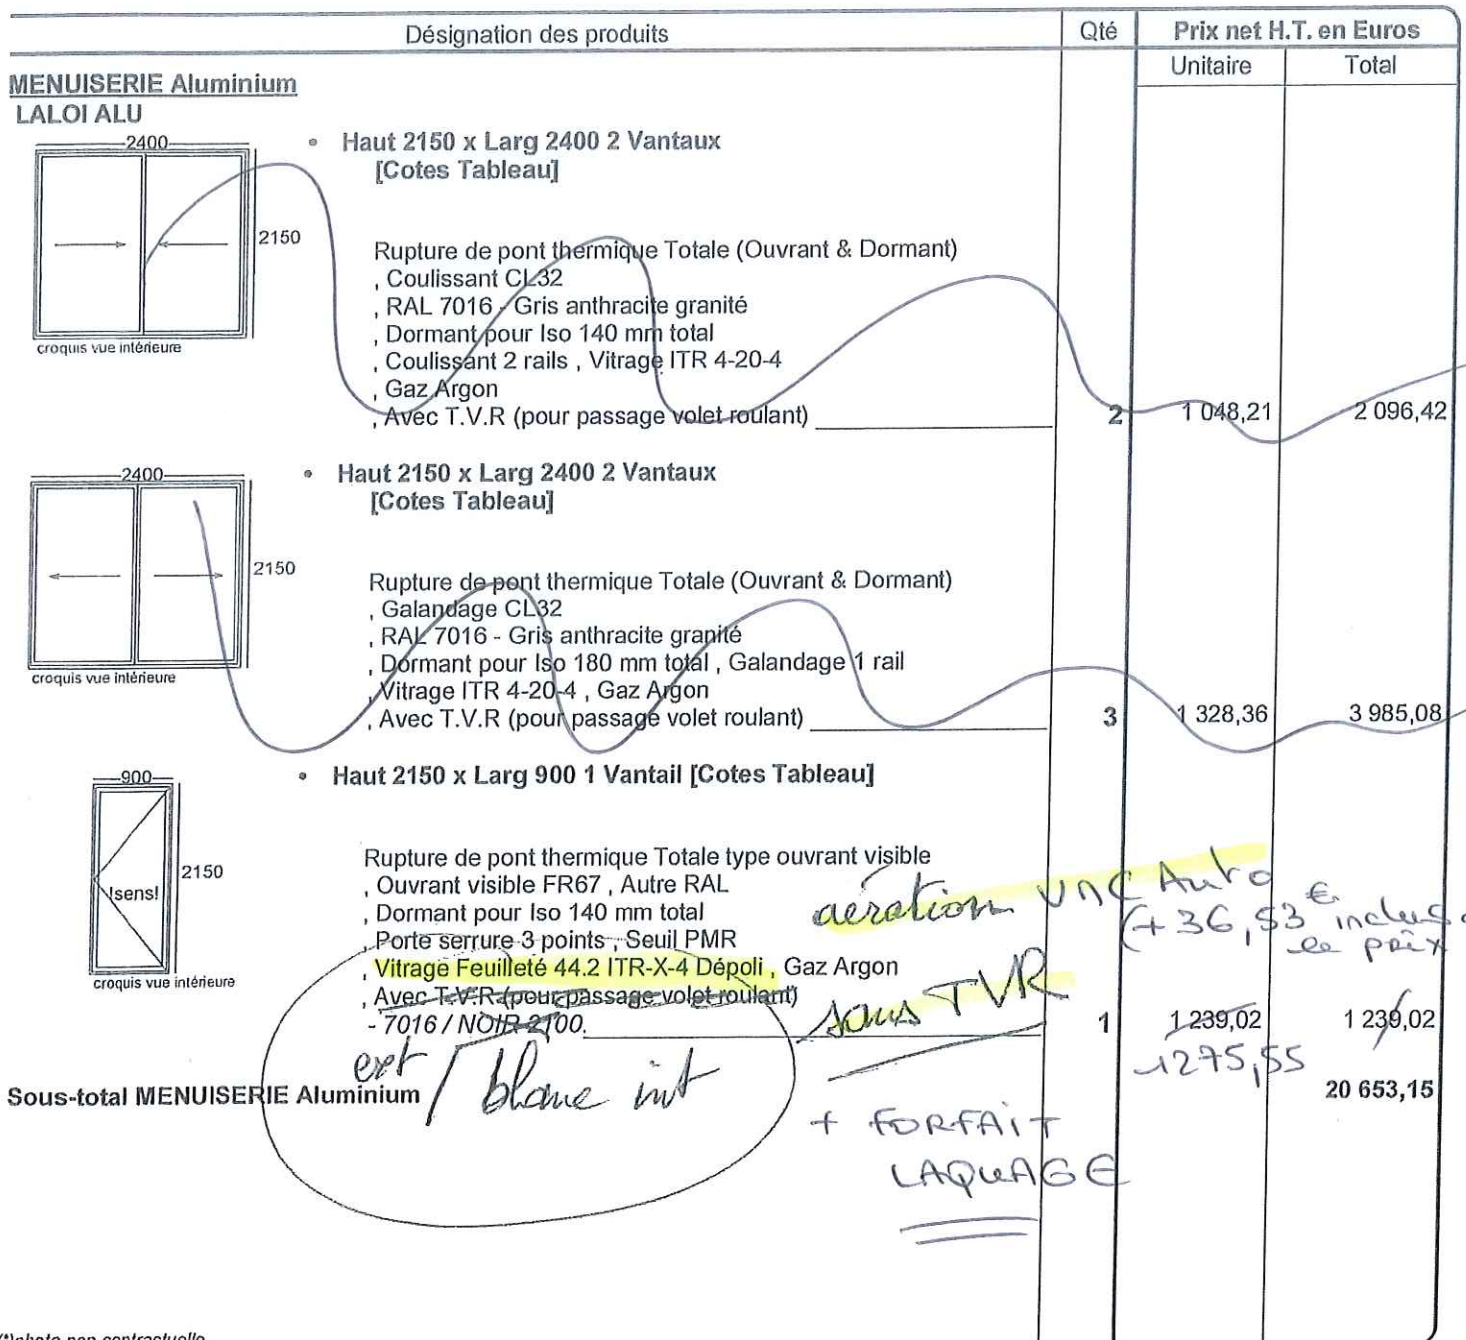 Désignation des produits Qté Prix net H.T. en Euros
Unitaire Total
MENUISERIE Aluminium
LALOI ALU
2400
• Haut 2150 x Larg 2400 2 Vantaux
[Cotes Tableau]
2150
Rupture de pont thermique Totale (Ouvrant & Dormant)
, Coulissant CL32
, RAL 7016 - Gris anthracite granité
, Dormant pour Iso 140 mm total
croquis vue intérieure
, Coulissant 2 rails , Vitrage ITR 4-20-4
, Gaz Argon
, Avec T.V.R (pour passage volet roulant) 2 1 048,21 2 096,42
2400
• Haut 2150 x Larg 2400 2 Vantaux
[Cotes Tableau]
2150
Rupture de pont thermique Totale (Ouvrant & Dormant)
, Galandage CL32
, RAL 7016 - Gris anthracite granité
, Dormant pour Iso 180 mm total , Galandage 1 rail
croquis vue intérieure
, Vitrage ITR 4-20-4 , Gaz Argon
, Avec T.V.R (pour passage volet roulant) 3 1 328,36 3 985,08
900
• Haut 2150 x Larg 900 1 Vantail [Cotes Tableau]
2150
!sens!
Rupture de pont thermique Totale type ouvrant visible
, Ouvrant visible FR67 , Autre RAL
, Dormant pour Iso 140 mm total
, Porte serrure 3 points , Seuil PMR
, Vitrage Feuilleté 44.2 ITR-X-4 Dépoli , Gaz Argon
croquis vue intérieure
, Avec T.V.R (pour passage volet roulant)
- 7016 / NOIR 2100. 1 1 239,02 1 239,02
aération VMC Auto
(+ 36,53 € inclus
le prix
sans TVR
1275,55
ext / blanc int
Sous-total MENUISERIE Aluminium 20 653,15
+ FORFAIT
LAQUAGE
(*)photo non contractuelle